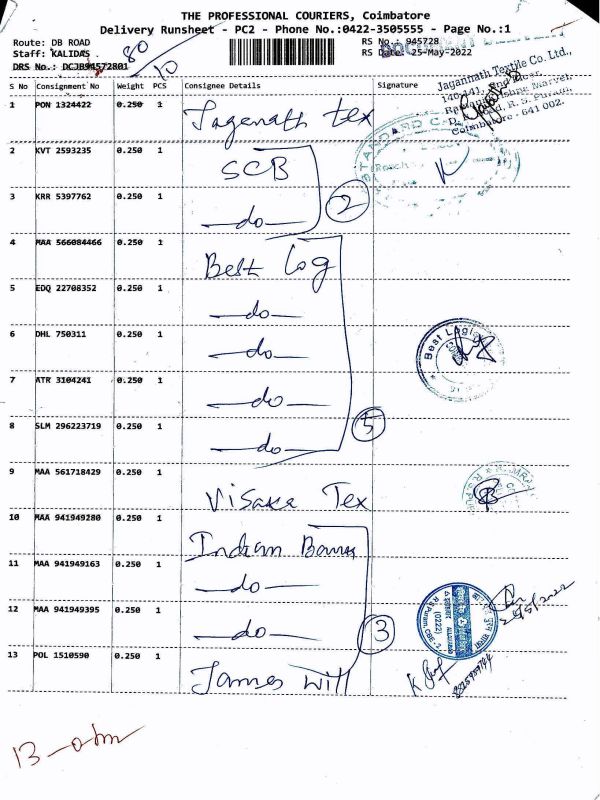 THE PROFESSIONAL COURIERS, Coimbatore
Delivery Runsheet - PC2 - Phone No.:0422-3505555 - Page No.:1
Route: DB ROAD
Staff: KALIDAS
DRS No.: DCJB94572801
80
10
RS No.: 945728
RS Date: 25-May-2022
S No Consignment No Weight PCS Consignee Details Signature
Jagannath Textile Co. Ltd.,
Coimbatore - 641 002.
1 PON 1324422 0.250 1 Jagenath tex
2 KVT 2593235 0.250 1 SCB
3 KRR 5397762 0.250 1 —do—
2
4 MAA 566084466 0.250 1 Best Log
5 EDQ 22708352 0.250 1 —do—
6 DHL 750311 0.250 1 —do—
Best Logis
7 ATR 3104241 0.250 1 —do—
8 SLM 296223719 0.250 1 —do—
5
9 MAA 561718429 0.250 1 Visaka Tex
10 MAA 941949280 0.250 1 Indian Bank
11 MAA 941949163 0.250 1 —do—
12 MAA 941949395 0.250 1 —do—
3
25/5/2022
13 POL 1510590 0.250 1 James Will
13